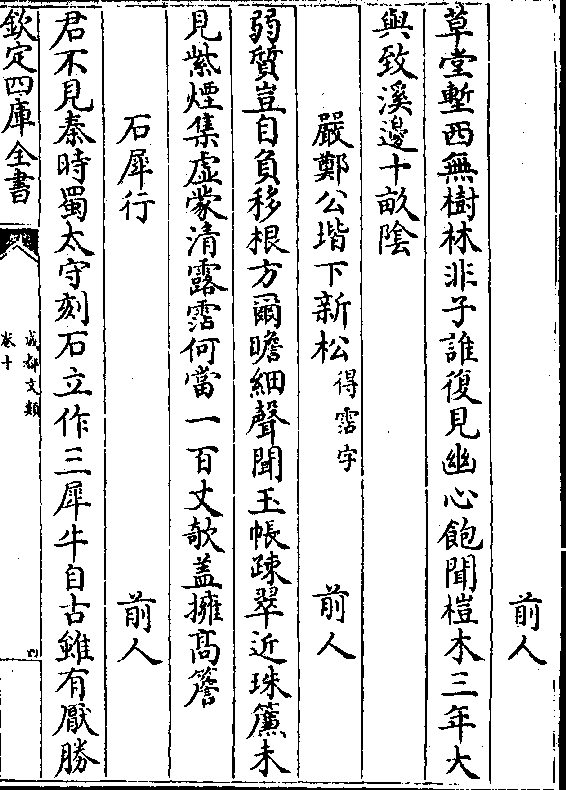 前人
草堂塹西無樹林非子誰復見幽心飽聞榿木三年大
與致溪邊十畝陰
嚴鄭公堦下新松得霑字 前人
弱質豈自負移根方爾瞻細聲聞玉帳疎翠近珠簾未
見紫煙集虛蒙清露霑何當一百丈欹盖擁髙簷
石犀行 前人
君不見秦時蜀太守刻石立作三犀牛自古雖有厭勝
欽定四庫全書
成都文類
卷十
四